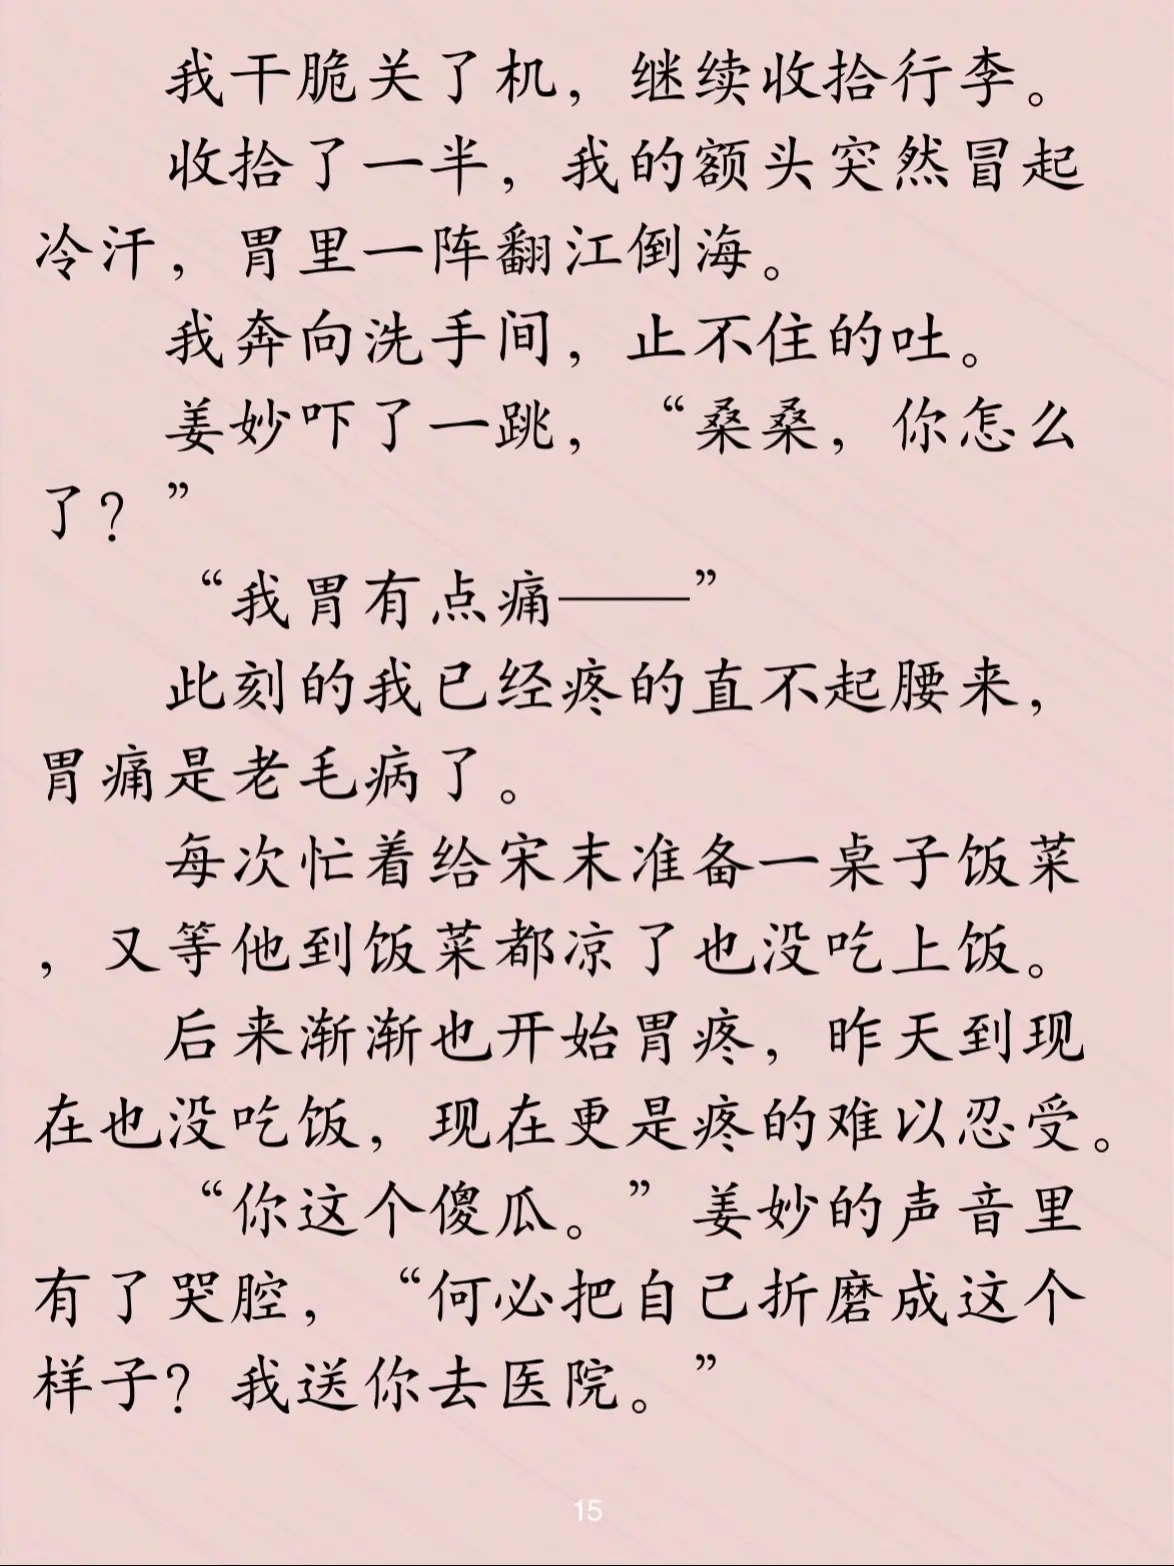 我干脆关了机，继续收拾行李。
收拾了一半，我的额头突然冒起
冷汗，胃里一阵翻江倒海。
我奔向洗手间，止不住的吐。
姜妙吓了一跳，“桑桑，你怎么
了？”
“我胃有点痛——”
此刻的我已经疼的直不起腰来，
胃痛是老毛病了。
每次忙着给宋末准备一桌子饭菜
，又等他到饭菜都凉了也没吃上饭。
后来渐渐也开始胃疼，昨天到现
在也没吃饭，现在更是疼的难以忍受。
“你这个傻瓜。”姜妙的声音里
有了哭腔，“何必把自己折磨成这个
样子？我送你去医院。”
15